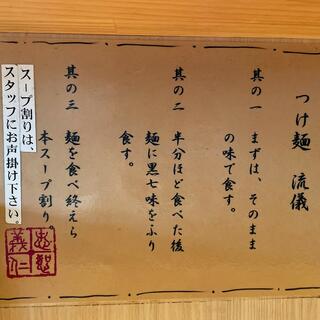 つけ麺 流儀
其の一 まずは、そのまま
の味で食す。
其の二 半分ほど食べた後
麺に黒七味をふり
食す。
其の三 麺を食べ終えら
本スープ割り。
スープ割りは、
スタッフにお声掛け下さい。